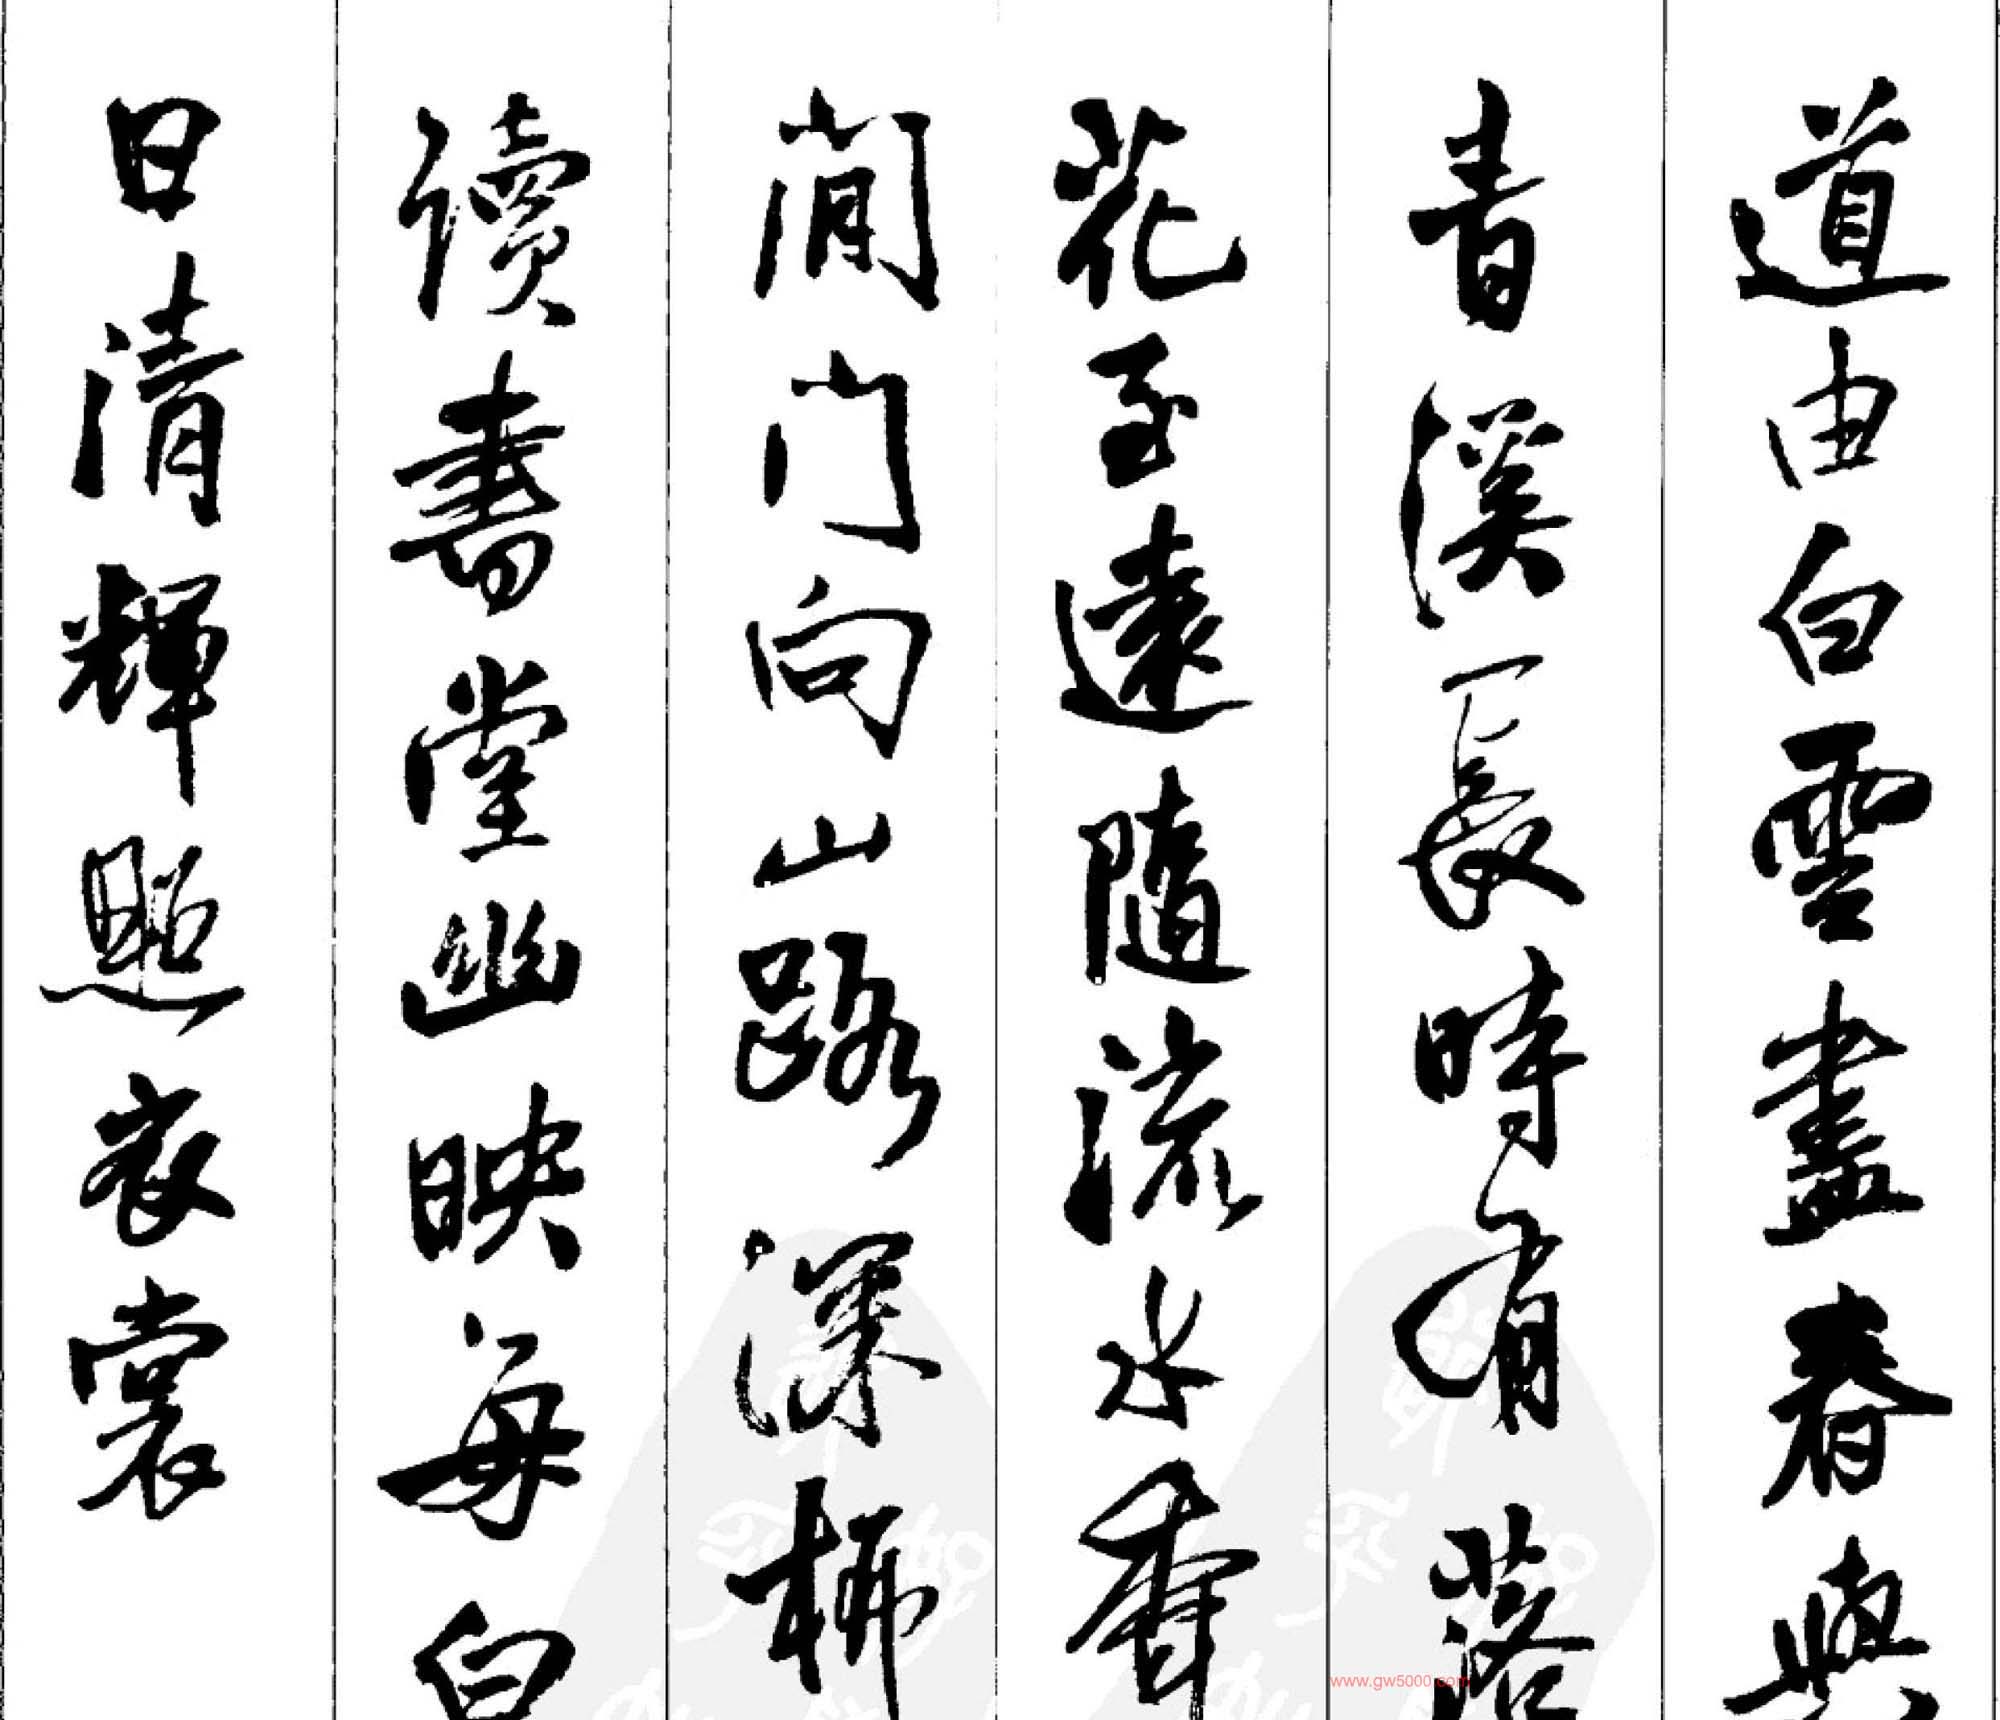 道由白雲盡春與
青溪長時有落
花至遠隨流水香
閒門向山路深柳
讀書堂幽映每白
日清輝照衣裳
www.gw5000.com